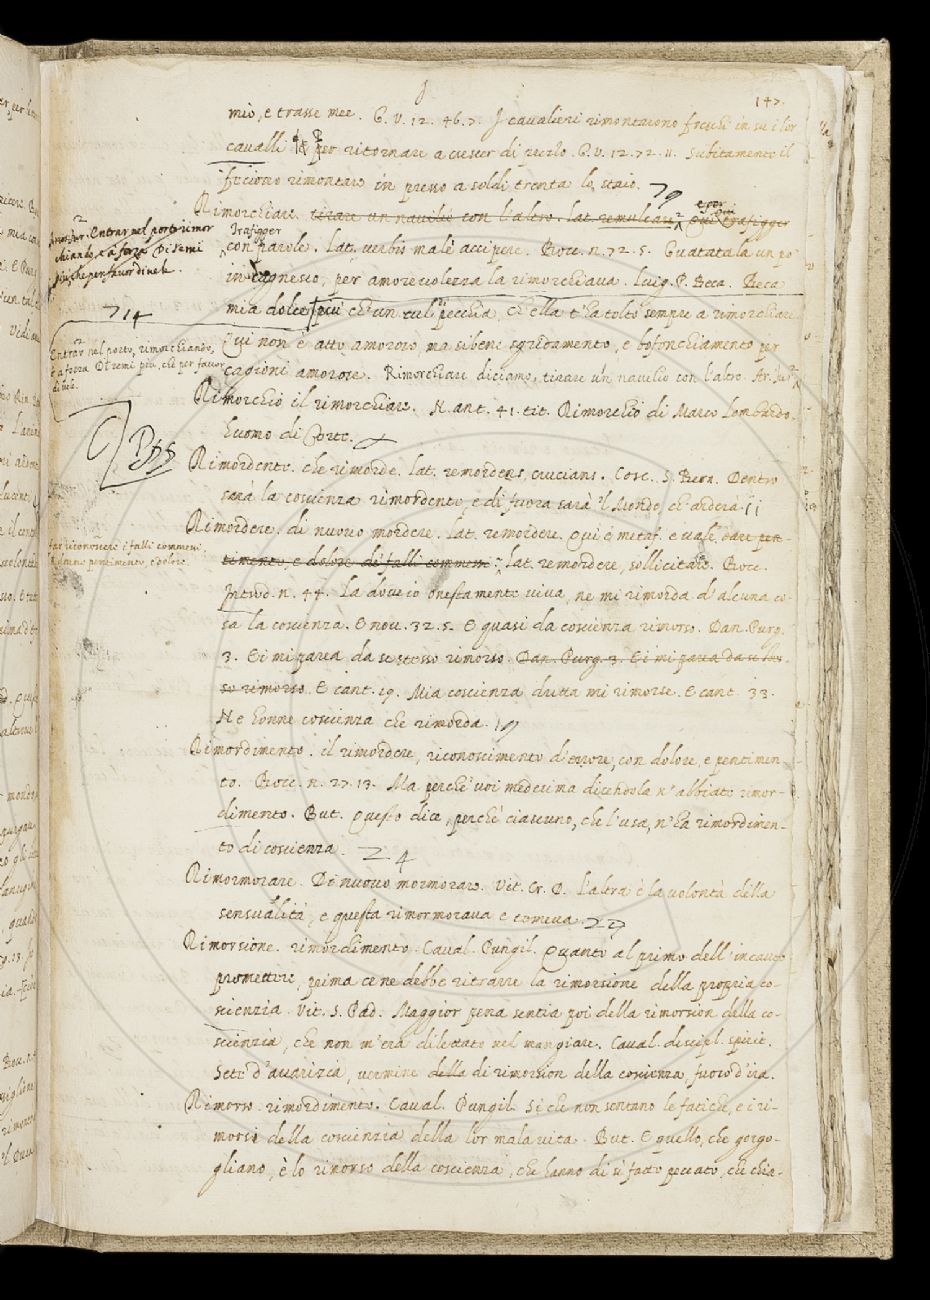 147.
mio, e trasse mee. G. V. 12. 46. 7. I cavalieri rimontarono freschi in su i lor
cavalli per ritornare a crescer di pregio. G. V. 12. 72. 11. Subitamente il
feciono rimontare in presso a soldi trenta lo staio.
Rimorchiare. tirare un navilio con l'altro. lat. remulcare. Qui trafigger
Trafigger
con parole. lat. verbis male accipere. Bocc. n. 72. 5. Guatatala un po'
in cagnesco, per amorevolezza la rimorchiava. Luig. P. Beca. Beca
mia dolce più ch'un cul di pecchia, ch'ella t'ha tolto sempre a rimorchiare
Qui non è atto amoroso ma sibene sgridamento, e bofonchiamento per
cagioni amorose. Rimorchiare diciamo, tirare un navilio con l'altro. Ar. Fur.
Entrar nel porto rimor
chiando, e a forza Di remi
più che per favor di vele.
714
Entrar nel porto, rimorchiando,
e a forza Di remi più, che per favor
di vele.
Rimorchio il rimorchiare. N. ant. 41. tit. Rimorchio di Marco Lombardo
huomo di Corte.
Rimordente. che rimorde. lat. remordens, crucians. Cosc. S. Bern. Dentro
sarà la coscienza rimordente, e di fuora sarà 'l Mondo, ch'arderà. 11
Rimordere. di nuovo mordere. lat. remordere. Qui è metaf. e vale, dare pen-
timento, e dolore de' falli commessi. lat. remordere, sollicitare. Bocc.
far riconoscere i falli commessi,
pentimento, e dolore.
introd. n. 44. La dove io onestamente viva, ne mi rimorda d'alcuna co-
sa la coscienza. E nov. 32. 5. E quasi da coscienza rimorso. Dan. Purg.
3. Ei mi parea da se stesso rimorso. Dan. Purg. 3. Ei mi parea da se stes-
so rimorso. E cant. 19. Mia coscienza dritta mi rimorse. E cant. 33.
Ne honne coscienza che rimorda. 19
Rimordimento. il rimordere, riconoscimento d'errore, con dolore, e pentimen-
to. Bocc. n. 27. 13. Ma perche voi medesima dicendola n'abbiate rimor-
dimento. But. Questo dice, perchè ciascuno, che l'usa, n'ha rimordimen-
to di coscienza. 24
Rimormorare. Di nuovo mormorare. Vit. Cr. D. L'altra è la volontà della
sensualità, e questa rimormorava e temeva. 29
Rimorsione. rimordimento. Caval. Pungil. Quanto al primo dell'incauto
promettere, prima ce ne debbe ritrarre la rimorsione della propria co-
scienzia. Vit. S. Pad. Maggior pena sentia poi della rimorsion della co-
scienzia, che non m'era dilettato nel mangiare. Caval. discipl. spirit.
Sete d'avarizia, vermine della di rimorsion della coscienza, fuoco d'ira.
Rimorso. rimordimento. Caval. Pungil. Si che non sentano le fatiche, e i ri-
morsi della coscienzia della lor mala vita. But. E quello, che gorgo-
gliano, è lo rimorso della coscienzia, che hanno di sì fatto peccato, che chia-